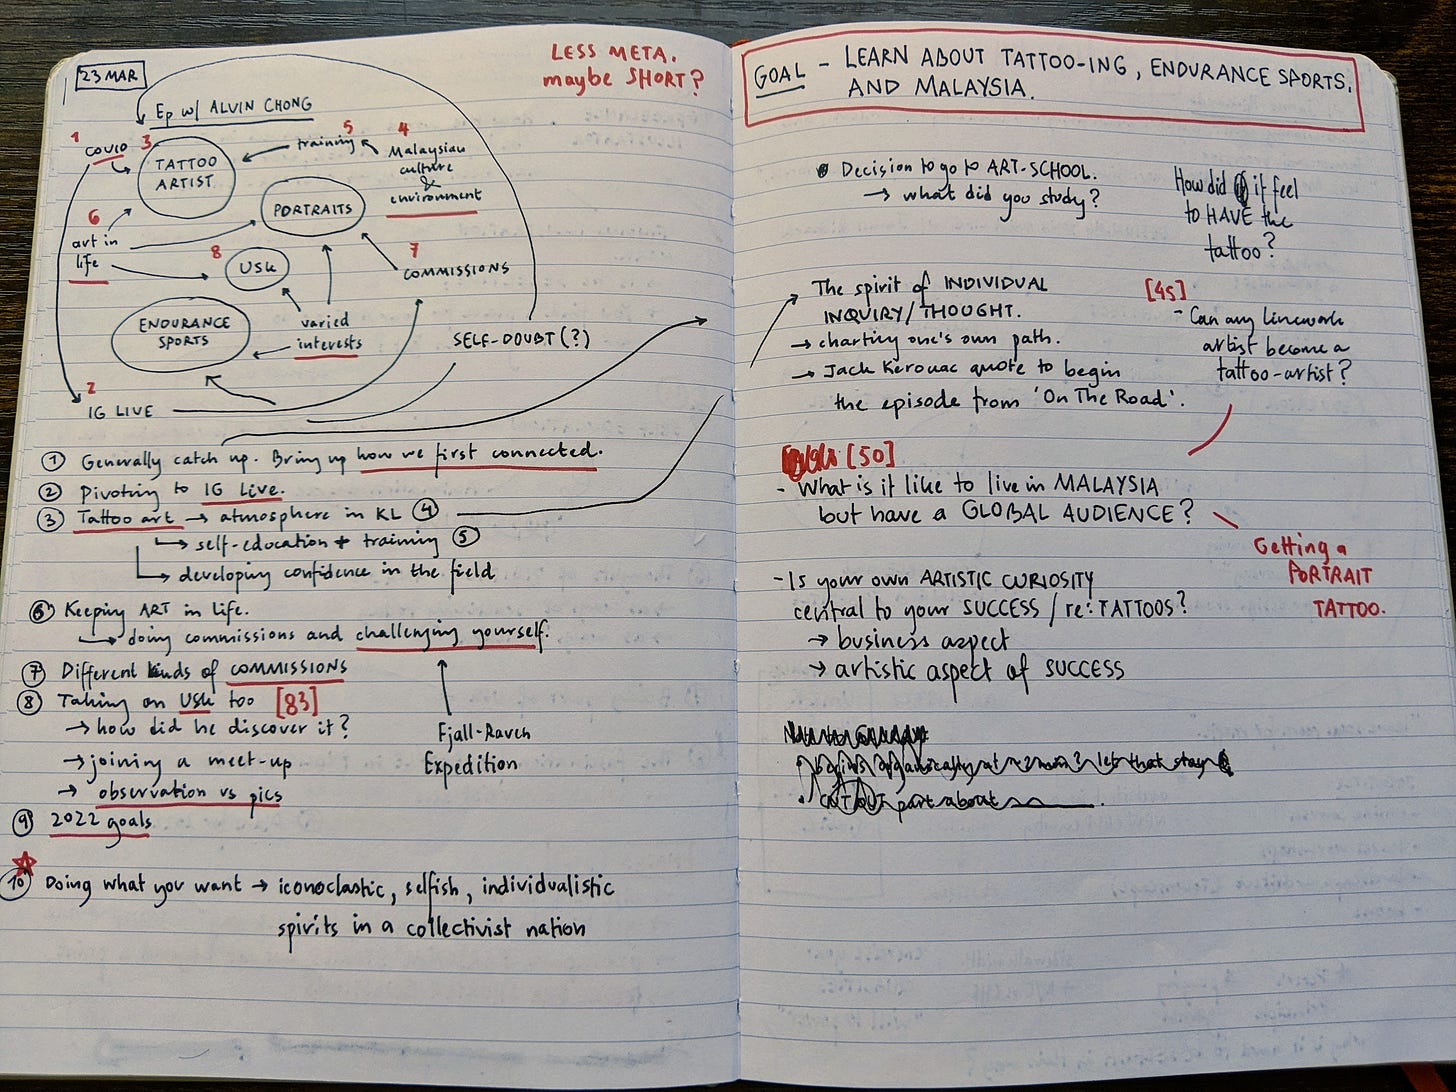 23 MAR
LESS META.
maybe SHORT?
Ep w/ ALVIN CHONG
1
COVID
3
TATTOO
ARTIST
5
training
4
Malaysian
culture
&
environment
PORTRAITS
6
art in
life
8
USk
7
COMMISSIONS
ENDURANCE
SPORTS
varied
interests
SELF-DOUBT(?)
2
IG LIVE
① Generally catch up. Bring up how we first connected.
② Pivoting to IG Live.
③ Tattoo art → atmosphere in KL ④
↳ self-education + training ⑤
↳ developing confidence in the field
⑥ Keeping ART in life.
↳ doing commissions and challenging yourself.
⑦ Different kinds of COMMISSIONS
⑧ Taking on USk too [83]
→ how did he discover it?
→ joining a meet-up
→ observation vs pics
Fjall-Raven
Expedition
⑨ 2022 goals
⑩ Doing what you want → iconoclastic, selfish, individualistic
spirits in a collectivist nation
GOAL - LEARN ABOUT TATTOO-ING, ENDURANCE SPORTS.
AND MALAYSIA.
• Decision to go to ART-SCHOOL.
→ what did you study?
How did it feel
to HAVE the
tattoo?
The spirit of INDIVIDUAL
INQUIRY/THOUGHT.
→ charting one's own path.
→ Jack Kerouac quote to begin
the episode from 'On The Road'.
[45]
- Can any linework
artist become a
tattoo-artist?
[50]
- What is it like to live in MALAYSIA
but have a GLOBAL AUDIENCE?
Getting a
PORTRAIT
TATTOO.
- Is your own ARTISTIC CURIOSITY
central to your SUCCESS / re: TATTOOS?
→ business aspect
→ artistic aspect of SUCCESS
let that stay
• CUT OUT part about